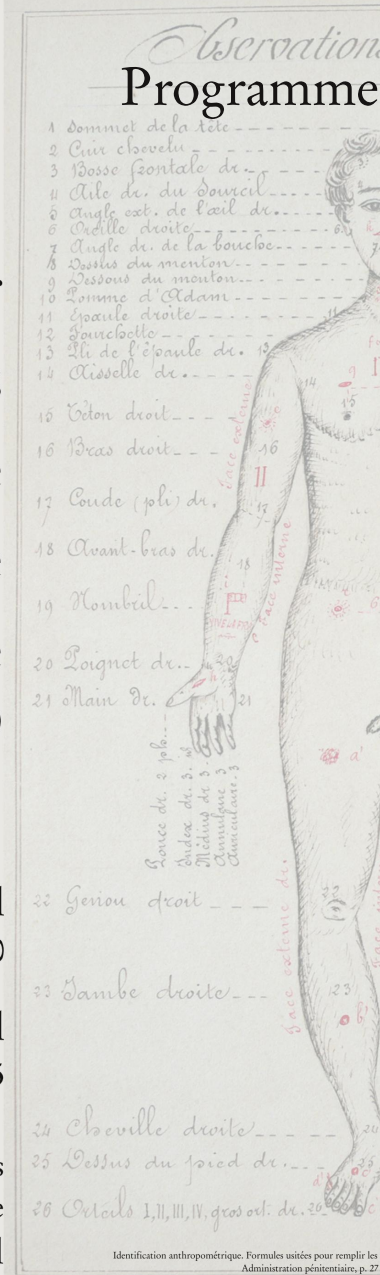 Observations
Programme
1 Sommet de la tête
2 Cuir chevelu
3 Bosse frontale dr.
4 Aile dr. du Sourcil
5 Angle ext. de l'œil dr.
6 Oreille droite
7 Angle dr. de la bouche
8 Dessus du menton
9 Dessous du menton
10 Pomme d'Adam
11 Epaule droite
12 Fourchette
13 Pli de l'épaule dr.
14 Aisselle dr.
15 Téton droit
16 Bras droit
17 Coude (pli) dr.
18 Avant-bras dr.
19 Nombril
20 Poignet dr.
21 Main dr.
Pouce dr. 2 ph.
Index dr. 3.
Médius dr 3
Annulaire 3
Auriculaire. 3
22 Genou droit
23 Jambe droite
24 Cheville droite
25 Dessus du pied dr.
26 Orteils I, II, III, IV, gros ort. dr.
Face externe
Face interne
Face externe dr.
II
Identification anthropométrique. Formules usitées pour remplir les
Administration pénitentiaire, p. 27